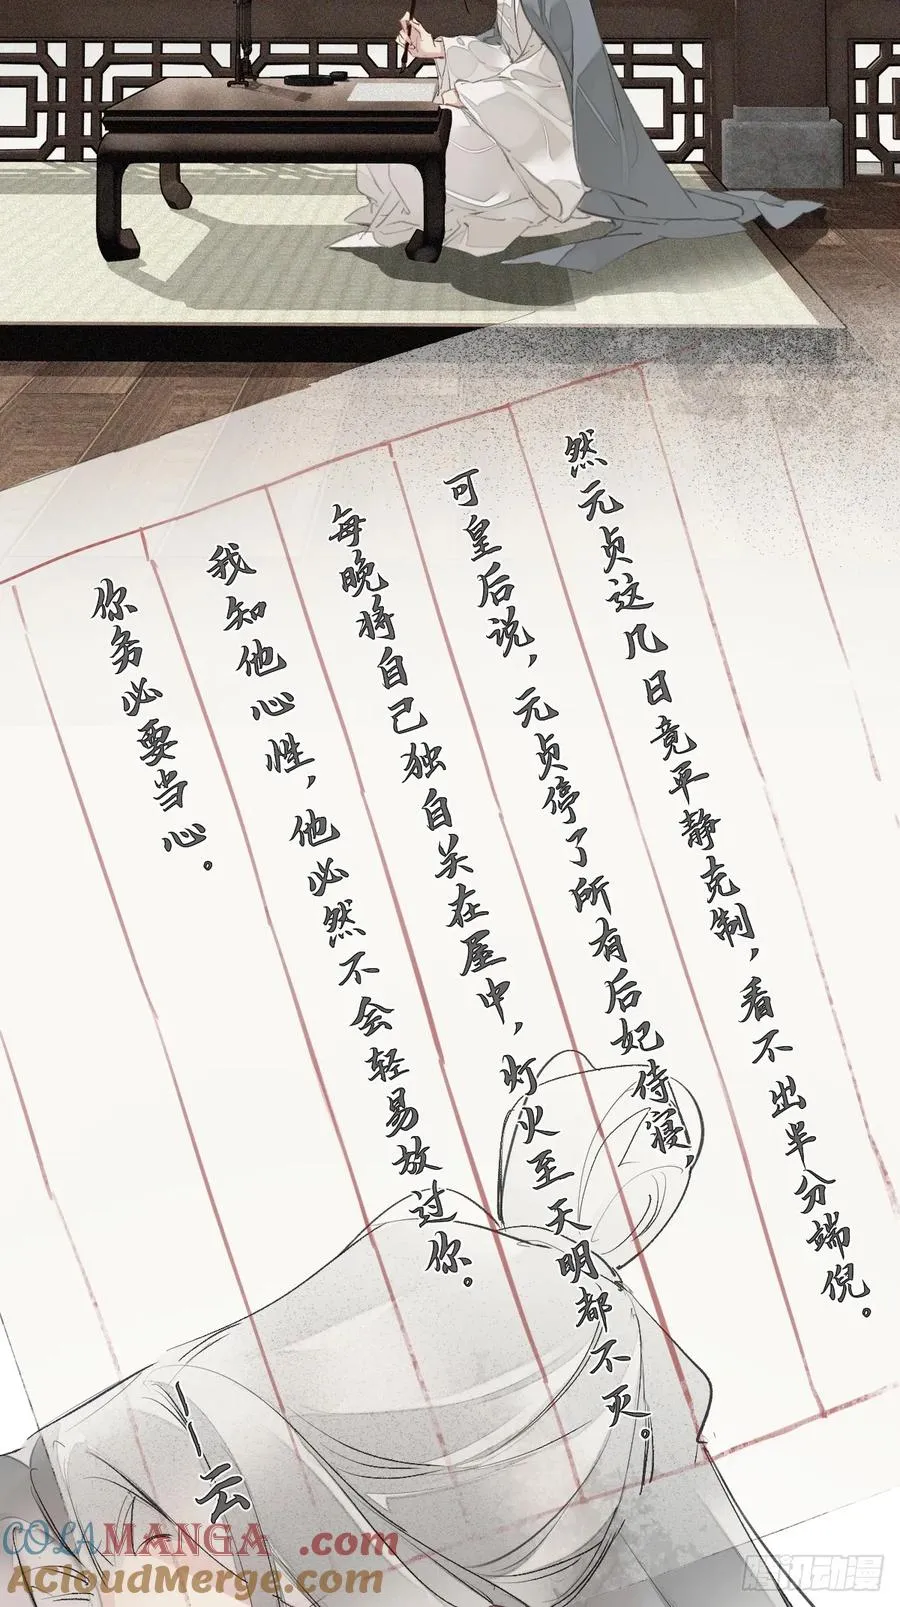 然元贞这几日竟平静克制，看不出半分端倪。
可皇后说，元贞停了所有后妃侍寝，
每晚将自己独自关在屋中，灯火至天明都不灭。
我知他心性，他必然不会轻易放过你。
你务必要当心。
——云
COLAMANGA.com
ACloudMerge.com
腾讯动漫